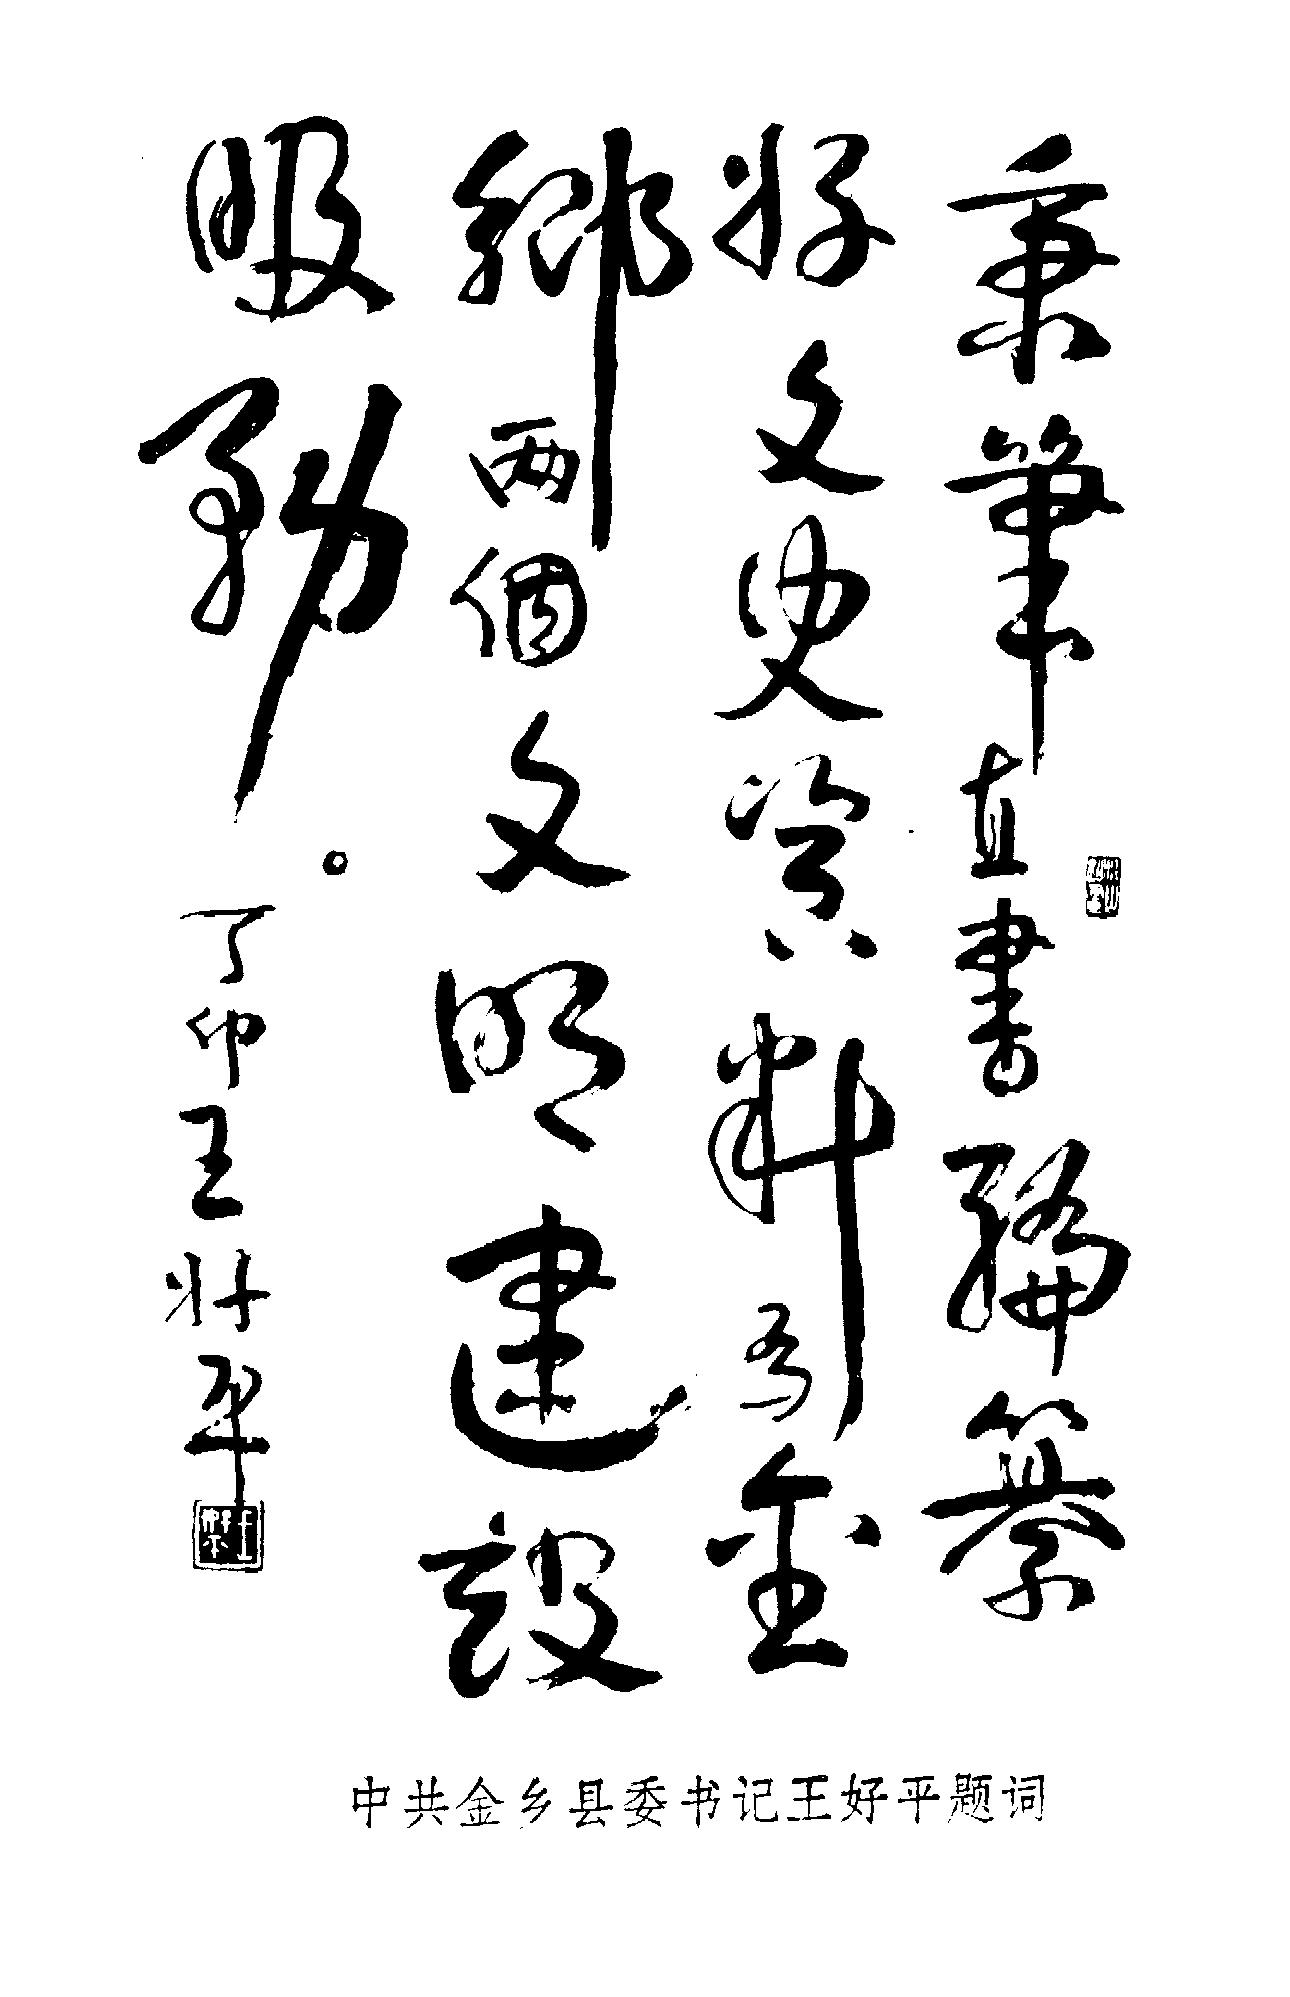 秉筆直書編纂
好文史資料為金
鄉两個文明建設
服務。
丁卯王好平
中共金乡县委书记王好平题词